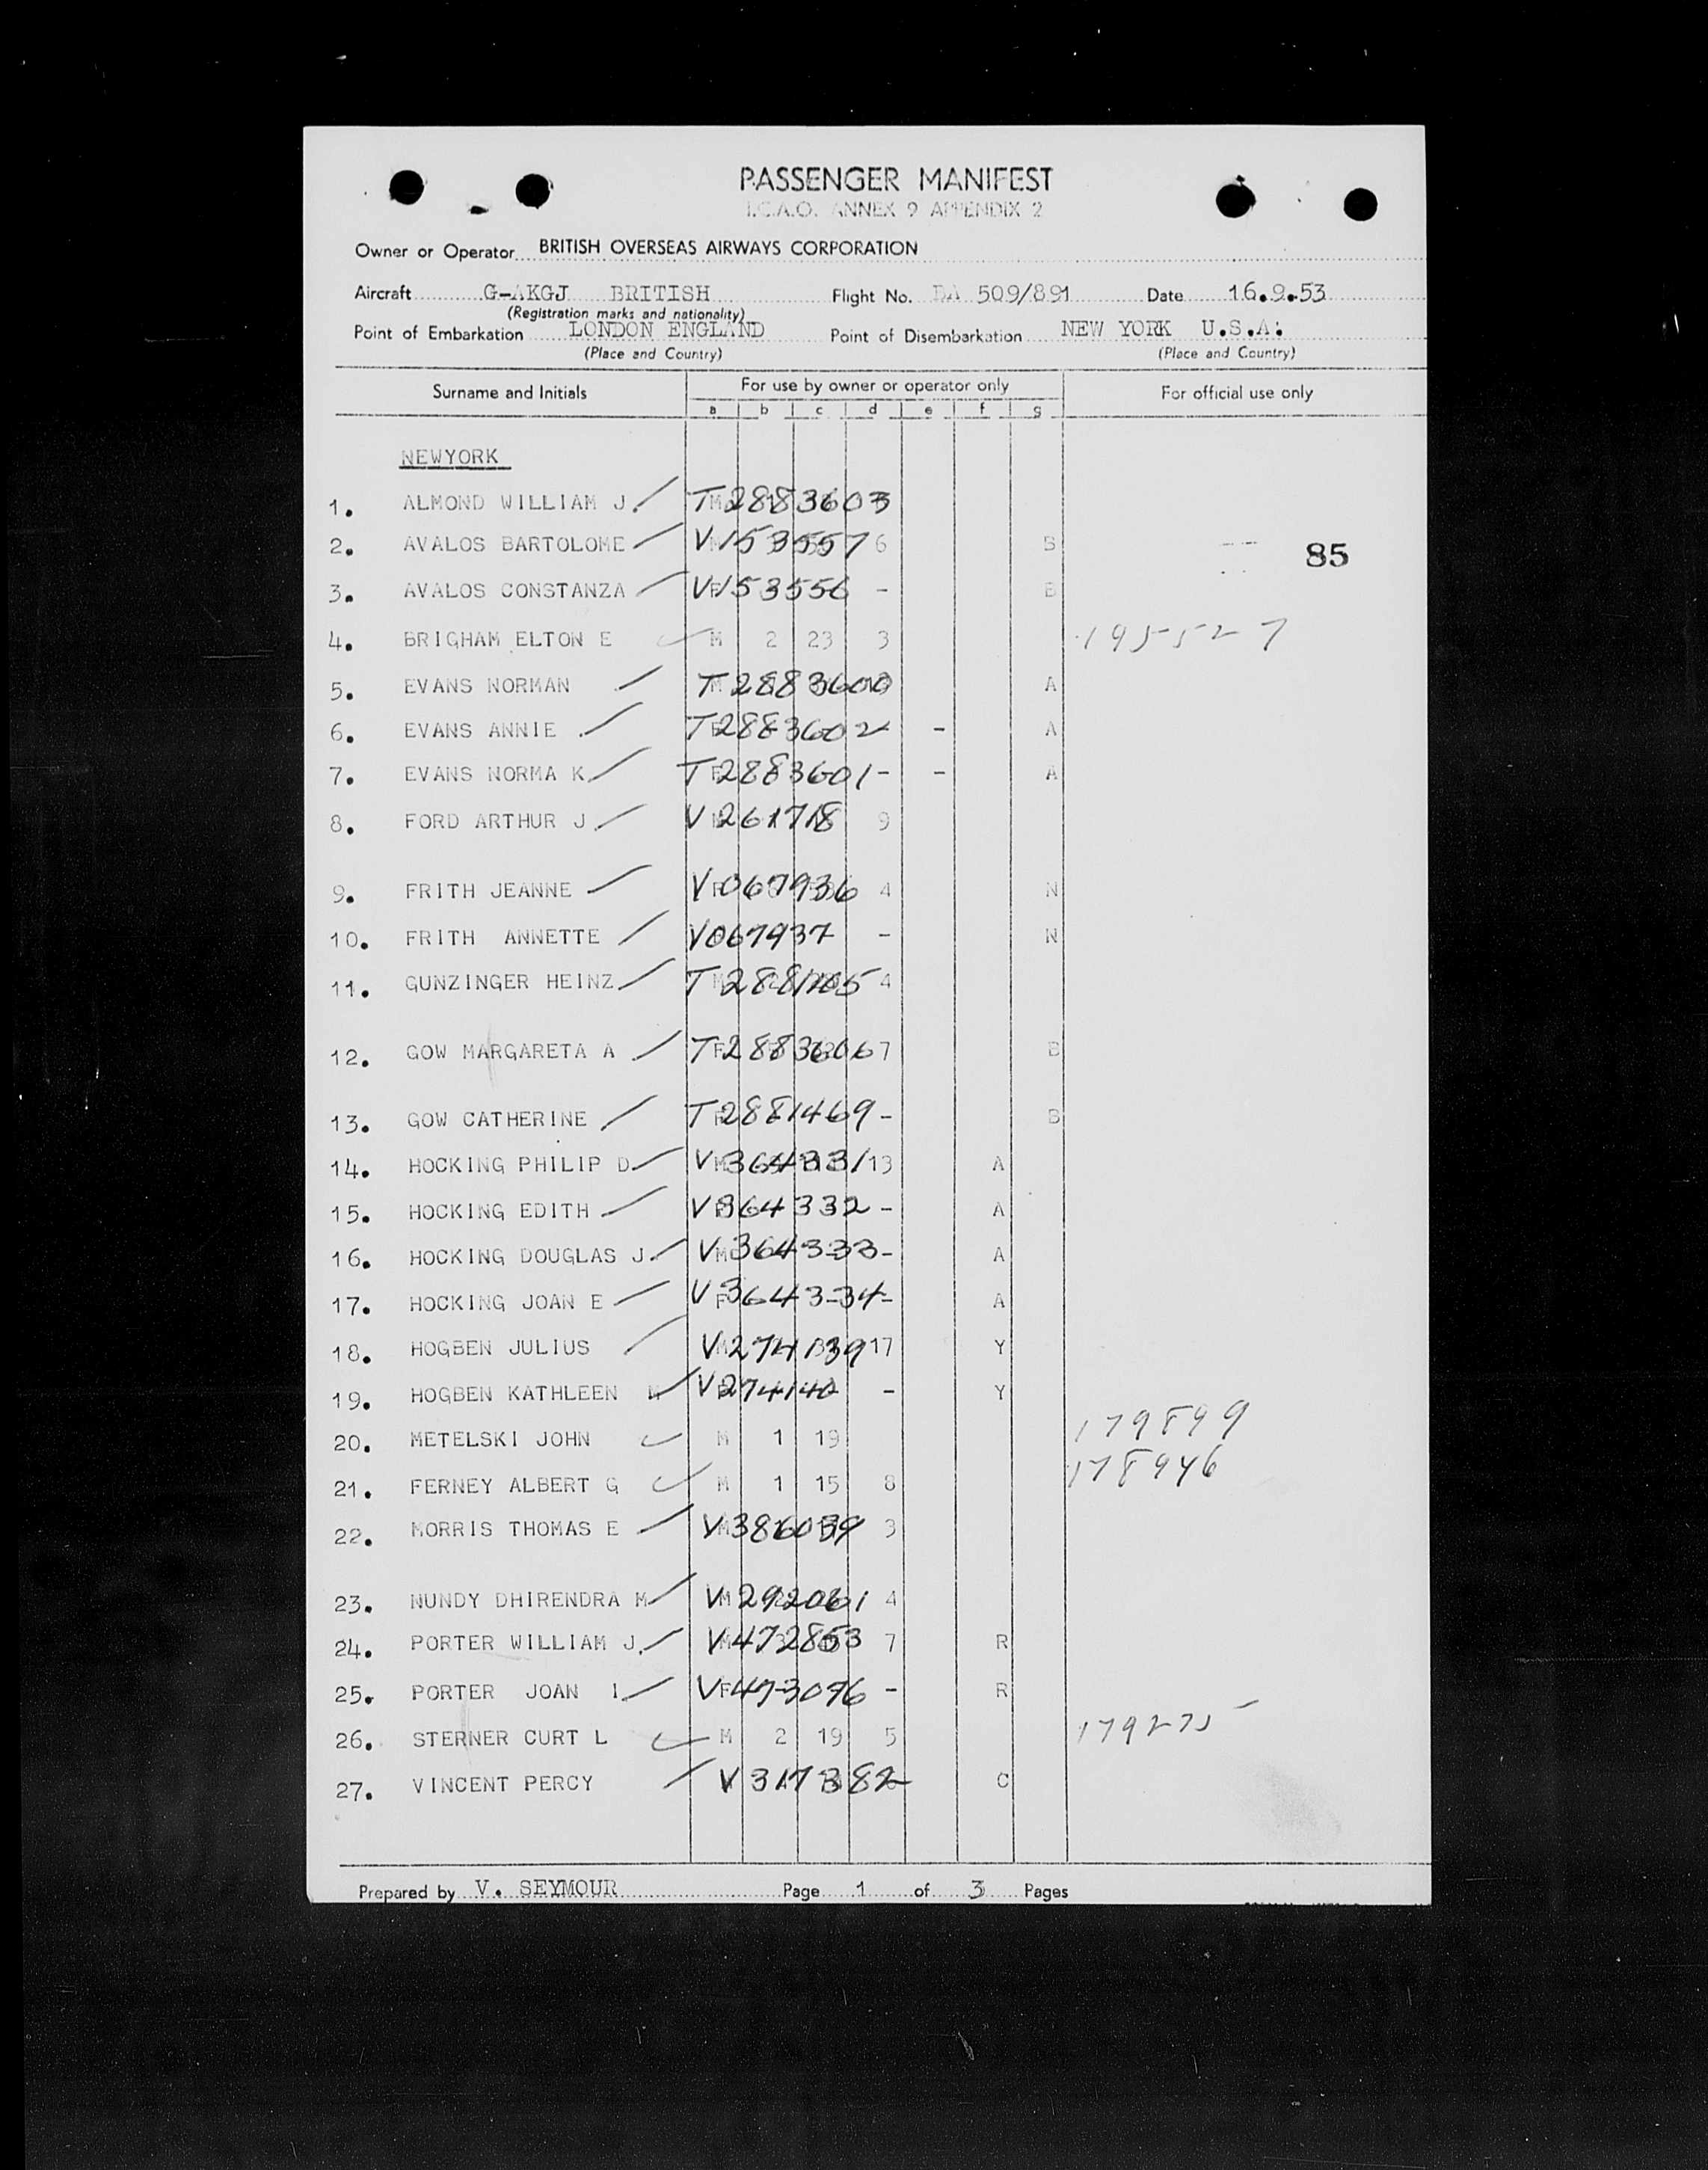 PASSENGER MANIFEST
I.C.A.O. ANNEX 9 APPENDIX 2
Owner or Operator BRITISH OVERSEAS AIRWAYS CORPORATION
Aircraft G-AKGJ BRITISH Flight No. BA 509/891 Date 16.9.53
(Registration marks and nationality)
Point of Embarkation LONDON ENGLAND Point of Disembarkation NEW YORK U.S.A.
(Place and Country) (Place and Country)
Surname and Initials For use by owner or operator only For official use only
a b c d e f g
NEWYORK
1. ALMOND WILLIAM J. T 2883603
2. AVALOS BARTOLOME V 153557 6 B
85
3. AVALOS CONSTANZA V 153556 - B
4. BRIGHAM ELTON E M 2 23 3 195527
5. EVANS NORMAN T 2883600 A
6. EVANS ANNIE T 2883602 - A
7. EVANS NORMA K T 2883601 - - A
8. FORD ARTHUR J V 261718 9
9. FRITH JEANNE V 067936 4 N
10. FRITH ANNETTE V 067937 - N
11. GUNZINGER HEINZ T 2881105 4
12. GOW MARGARETA A T 2883606 7 B
13. GOW CATHERINE T 2881469 - B
14. HOCKING PHILIP D V 364331 13 A
15. HOCKING EDITH V 364332 - A
16. HOCKING DOUGLAS J. V 364333 - A
17. HOCKING JOAN E V 364334 - A
18. HOGBEN JULIUS V 274139 17 Y
19. HOGBEN KATHLEEN V 274140 - Y
20. METELSKI JOHN M 1 19 179899
21. FERNEY ALBERT G M 1 15 8 178946
22. MORRIS THOMAS E V 386039 3
23. NUNDY DHIRENDRA M V 292061 4
24. PORTER WILLIAM J. V 472853 7 R
25. PORTER JOAN I V 473096 - R
26. STERNER CURT L M 2 19 5 179275
27. VINCENT PERCY V 317382 C
Prepared by V. SEYMOUR Page 1 of 3 Pages